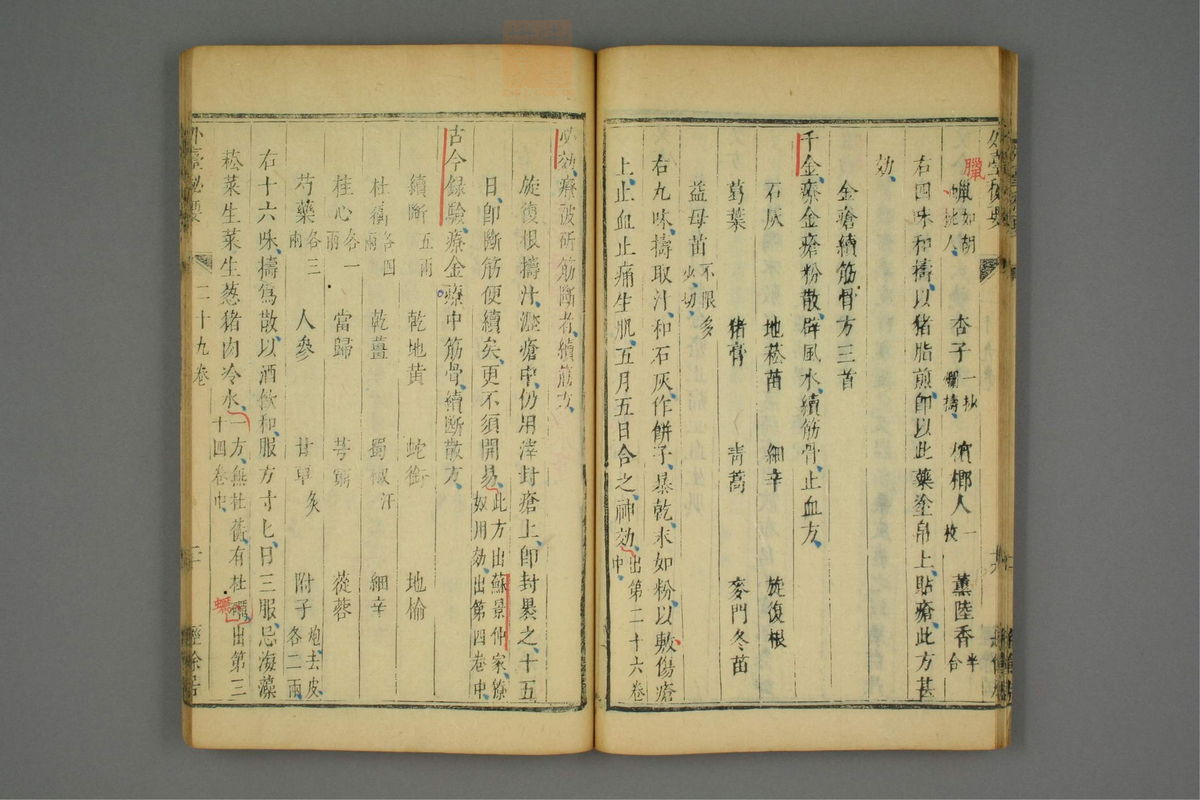 蠟如胡桃人　杏子一抄爛擣　檳榔人一枚　薰陸香半合
右四味和擣以猪脂煎即以此藥塗帛上貼瘡此方甚
効
金瘡續筋骨方三首
千金療金瘡粉散辟風水續筋骨止血方
石灰　地菘苗　細辛　旋復根
葛葉　猪膏　青蒿　麥門冬苗
益母苗不限多少切
右九味擣取汁和石灰作餅子暴乾末如粉以敷傷瘡
上止血止痛生肌五月五日合之神効出第二十六卷中
必効療被斫筋斷者續筋方
旋復根擣汁瀝瘡中仍用滓封瘡上即封暴之十五
日即斷筋便續矣更不須開易此方出蘇景仲家獠奴用効出第四卷中
古今録驗療金瘡中筋骨續斷散方
續斷五兩　乾地黄　蛇銜　地榆
杜蘅各四兩　乾薑　蜀椒汗　細辛
桂心各一兩　當歸　芎藭　蓯蓉
芍藥各三兩　人參　甘草炙　附子炮去皮各二兩
右十六味擣為散以酒飲和服方寸匕日三服忌海藻
菘菜生菜生葱猪肉冷水一方無杜蘅有杜蠣出第三十四卷中
外臺祕要　二十九卷